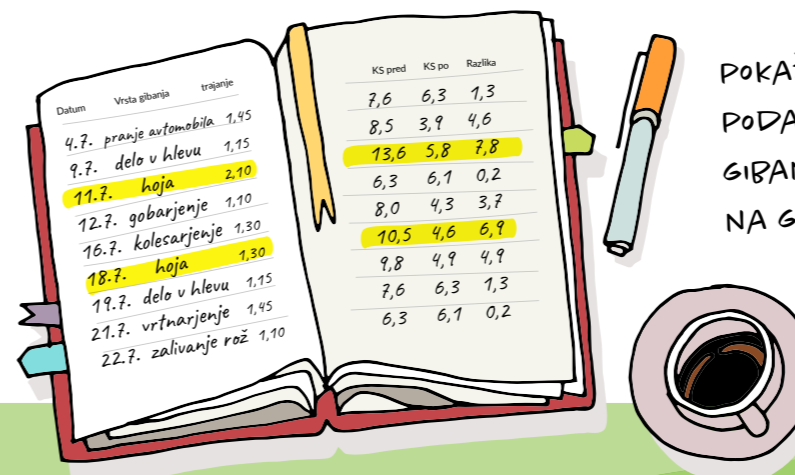 Datum Vrsta gibanja trajanje
4.7. pranje avtomobila 1,45
9.7. delo v hlevu 1,15
11.7. hoja 2,10
12.7. gobarjenje 1,10
16.7. kolesarjenje 1,30
18.7. hoja 1,30
19.7. delo v hlevu 1,15
21.7. vrtnarjenje 1,45
22.7. zalivanje rož 1,10
KS pred KS po Razlika
7,6 6,3 1,3
8,5 3,9 4,6
13,6 5,8 7,8
6,3 6,1 0,2
8,0 4,3 3,7
10,5 4,6 6,9
9,8 4,9 4,9
7,6 6,3 1,3
6,3 6,1 0,2
NA